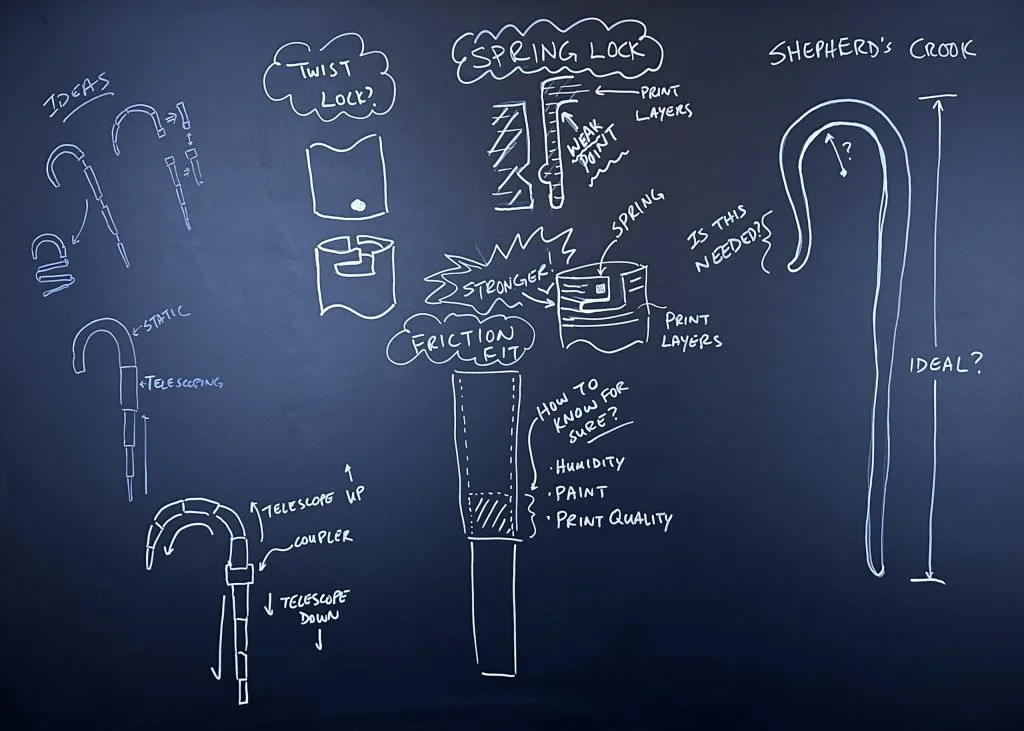 IDEAS
STATIC
TELESCOPING
TELESCOPE UP
COUPLER
TELESCOPE
DOWN
TWIST
LOCK?
SPRING LOCK
PRINT
LAYERS
WEAK
POINT
SPRING
STRONGER!
PRINT
LAYERS
FRICTION
FIT
HOW TO
KNOW FOR
SURE?
· HUMIDITY
· PAINT
· PRINT QUALITY
SHEPHERD'S CROOK
?
IS THIS
NEEDED?
IDEAL?